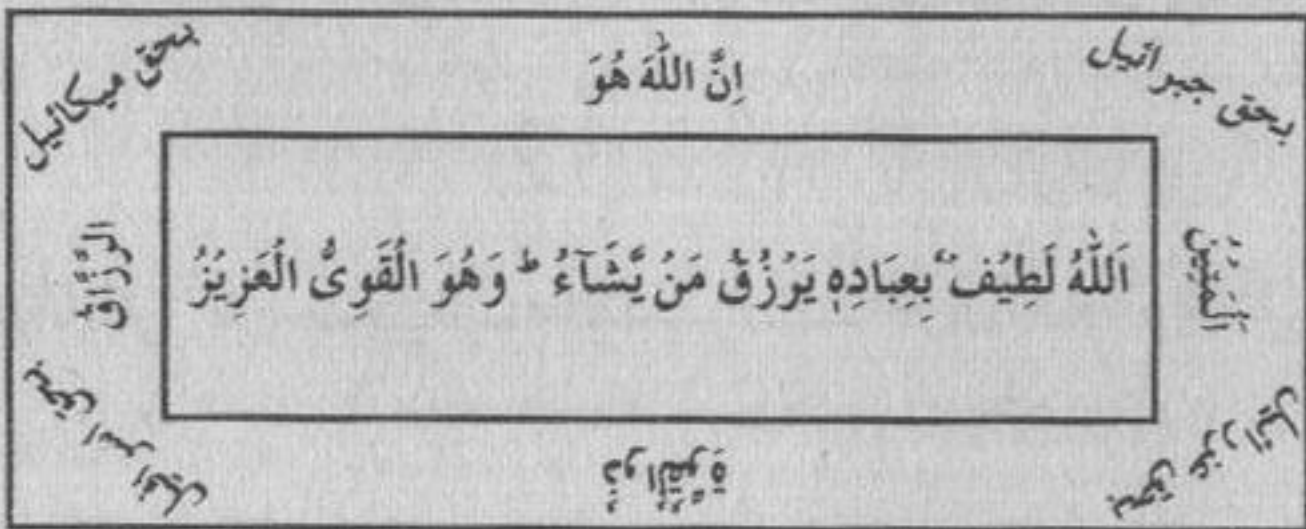 بحق جبرائیل
اِنَّ اللّٰهَ هُوَ
بحق میکائیل
الرَّزَّاقُ
اَللّٰهُ لَطِيْفٌۢ بِعِبَادِهٖ يَرْزُقُ مَنْ يَّشَآءُ ؕ وَهُوَ الْقَوِىُّ الْعَزِيْزُ
الْمَتِيْنُ
بحق اسرافیل
ذُو الْقُوَّةِ
بحق عزرائیل